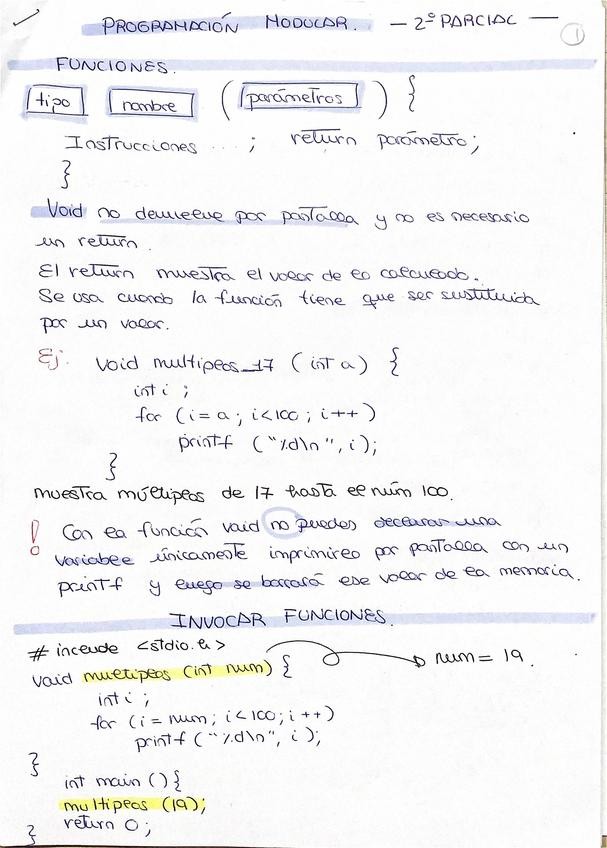 PROGRAMACIÓN MODULAR. — 2º PARCIAL —
1
FUNCIONES.
tipo nombre ( parámetros ) {
Instrucciones ... ; return parámetro;
}
Void no devuelve por pantalla y no es necesario
un return.
El return muestra el valor de lo calculado.
Se usa cuando la función tiene que ser sustituida
por un valor.
Ej. void multiplos_17 ( int a) {
int i ;
for (i = a ; i<100 ; i++)
printf ("%d\n", i);
}
muestra múltiplos de 17 hasta el núm 100.
! Con la función void no puedes declarar una
variable únicamente imprimirlo por pantalla con un
printf y luego se borrará ese valor de la memoria.
INVOCAR FUNCIONES.
# include <stdio.h>
void multiplos (int num) { num = 19.
int i ;
for (i = num ; i<100 ; i++)
printf ("%d\n", i);
}
int main () {
multiplos (19);
return 0 ;
}